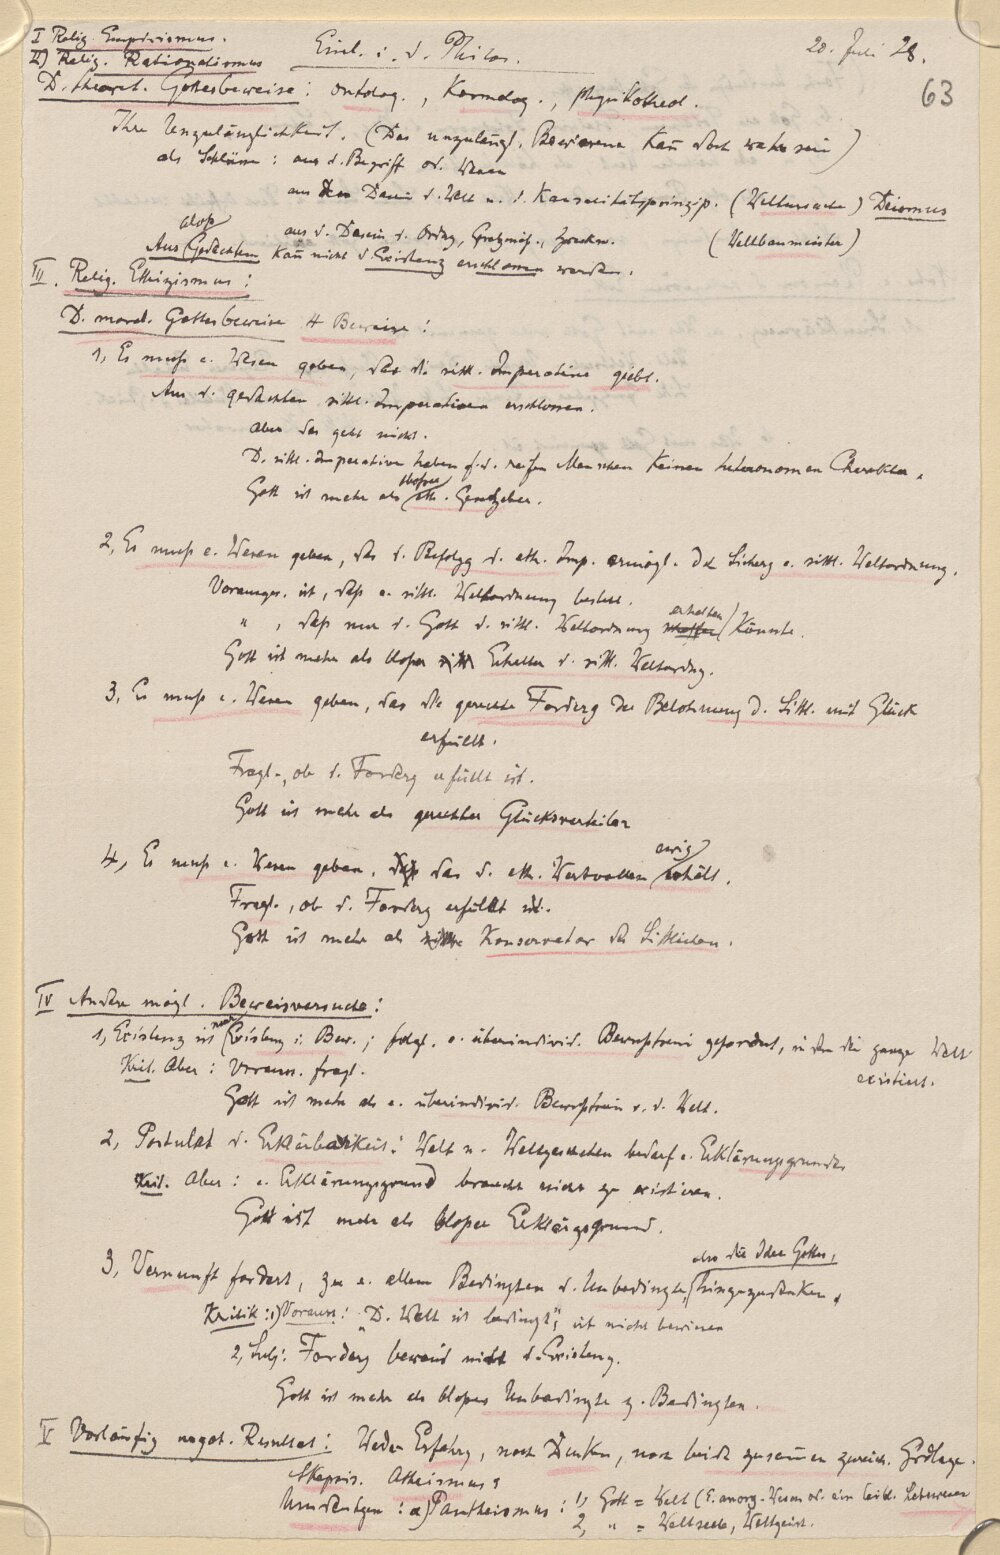 I Relig. Empirismus.
Einl. i. d. Philos.
20. Juli 28.
II) Relig. Rationalismus
63
D. theoret. Gottesbeweise: ontolog., Kosmolog., physikotheol.
Ihre Unzulänglichkeit. (Das unzulängl. Bewiesene kañ doch wahr sein)
als Schlüsse: aus d. Begriff od. Wesen
aus dem Dasein d. Welt u. d. Kausalitätsprinzip. (Weltursache) Deismus
aus d. Dasein d. Ordng, Gesetzmäß., Zweckm. (Weltbaumeister)
Aus bloß Gedachtem kañ nicht d. Existenz erschlossen werden.
III. Relig. Ethizismus:
D. moral. Gottesbeweise 4 Beweise:
1, Es muß e. Wesen geben, das die sittl. Imperative giebt.
Aus d. gedachten sittl. Imperativen erschlossen.
aber das geht nicht.
D. sittl. Imperative haben f. d. reifen Menschen keinen heteronomen Charakter.
Gott ist mehr als bloßer eth. Gesetzgeber.
2, Es muß e. Wesen geben, das d. Befolgg d. eth. Imp. ermögl. d. d. Sicherg e. sittl. Weltordnung.
Vorausges. ist, daß e. sittl. Weltordnung besteht.
" , daß nur d. Gott d. sittl. Weltordnung erhalten könnte.
Gott ist mehr als bloßer Erhalter d. sittl. Weltordng.
3, Es muß e. Wesen geben, das die gerechte Forderg der Belohnung d. Sittl. mit Glück
erfüllt.
Fragl., ob d. Forderg erfüllt ist.
Gott ist mehr als gerechter Glücksverteiler
4, Es muß e. Wesen geben, das d. eth. Wertvollen ewig erhält.
Fragl., ob d. Forderg erfüllt ist.
Gott ist mehr als Konservator des Sittlichen.
IV Andere mögl. Beweisversuche:
1, Existenz ist nur Existenz i. Bew.; folgl. e. überindivid. Bewußtsein gefordert, in dem die ganze Welt
existiert.
Krit. Aber: Vorauss. fragl.
Gott ist mehr als e. überindivid. Bewußtsein v. d. Welt.
2, Postulat d. Erklärbarkeit: Welt u. Weltgeschehen bedarf e. Erklärungsgrundes
Krit. Aber: e. Erklärungsgrund braucht nicht zu existieren.
Gott ist mehr als bloßer Erklärgsgrund.
3, Vernunft fordert, zu e. allem Bedingten d. Unbedingte, also die Idee Gottes, hinzuzudenken.
Kritik: 1) Vorauss: "D. Welt ist bedingt", ist nicht bewiesen
2, Subj. Forderg beweist nicht d. Existenz.
Gott ist mehr als bloßes Unbedingte z. Bedingten.
V Vorläufig negat. Resultat: Weder Erfahrg, noch Denken, noch beide zusam̃en zureich. Grdlage.
Skepsis. Atheismus?
Umdeutgen: a) Pantheismus: 1, Gott = Welt (E. anorg. Wesen od. ein leibl. Lebewesen
2, " = Weltseele, Weltgeist.